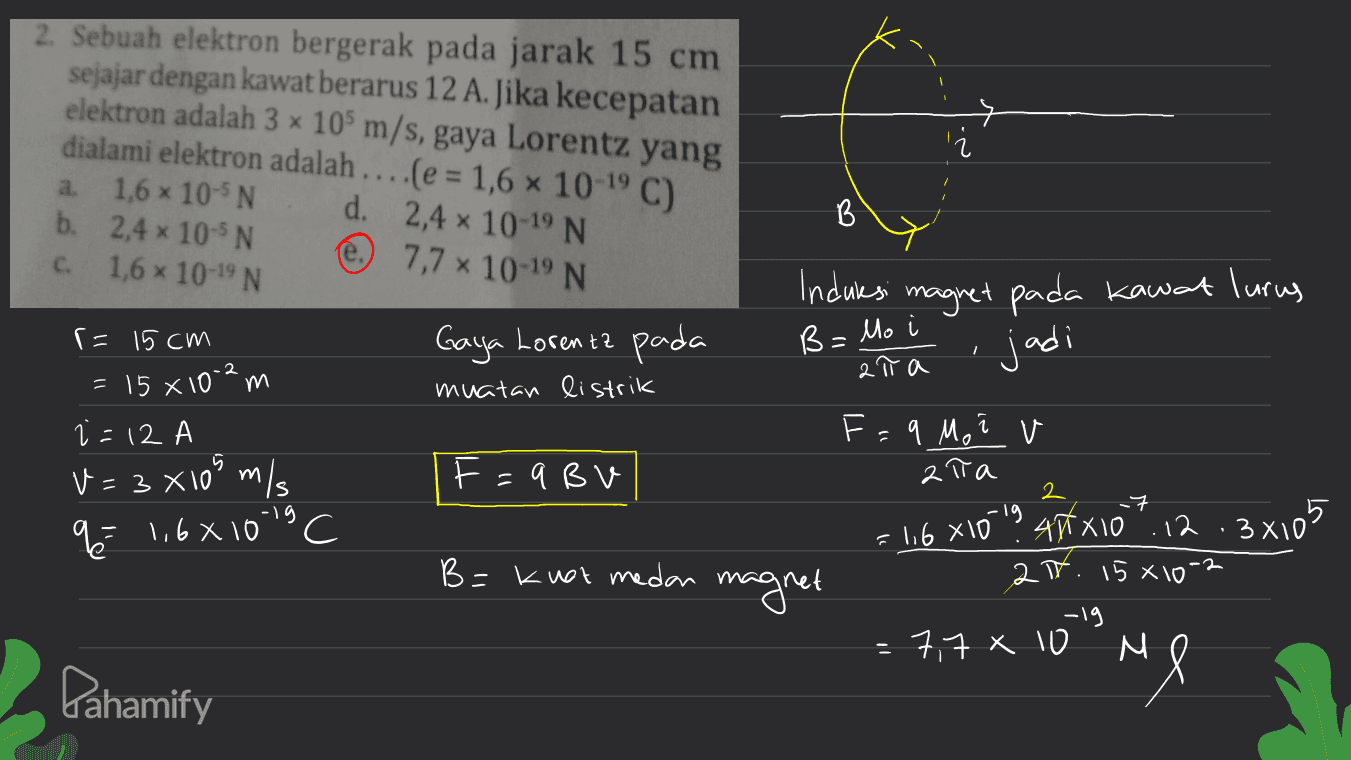 2. Sebuah elektron bergerak pada jarak 15 cm
sejajar dengan kawat berarus 12 A. Jika kecepatan
elektron adalah 3 × 10⁵ m/s, gaya Lorentz yang
dialami elektron adalah ....(e = 1,6 × 10⁻¹⁹ C)
a. 1,6 × 10⁻⁵ N
b. 2,4 × 10⁻⁵ N
c. 1,6 × 10⁻¹⁹ N
d. 2,4 × 10⁻¹⁹ N
e. 7,7 × 10⁻¹⁹ N
i
B
r = 15 cm
= 15 × 10⁻² m
i = 12 A
v = 3 × 10⁵ m/s
qe = 1,6 × 10⁻¹⁹ C
Gaya Lorentz pada
muatan listrik
F = q B v
B = kuat medan magnet
Induksi magnet pada kawat lurus
B = Mo i / 2 π a , jadi
F = q Mo i v / 2 π a
= 1,6 × 10⁻¹⁹ . 4π × 10⁻⁷ . 12 . 3 × 10⁵ / 2 π . 15 × 10⁻²
2
= 7,7 × 10⁻¹⁹ N
Pahamify